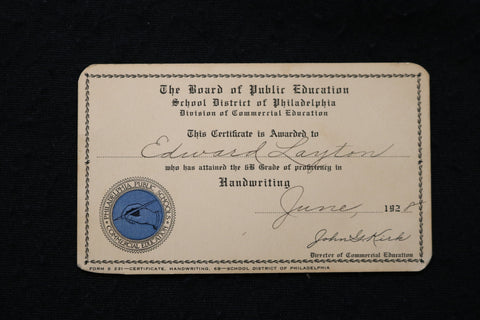 The Board of Public Education
School District of Philadelphia
Division of Commercial Education
This Certificate is Awarded to
Edward Layton
who has attained the 6B Grade of proficiency in
Handwriting
June, 1928
John G. Kirk
Director of Commercial Education
PHILADELPHIA PUBLIC SCHOOLS
COMMERCIAL EDUCATION
FORM S 221—CERTIFICATE, HANDWRITING, 6B—SCHOOL DISTRICT OF PHILADELPHIA